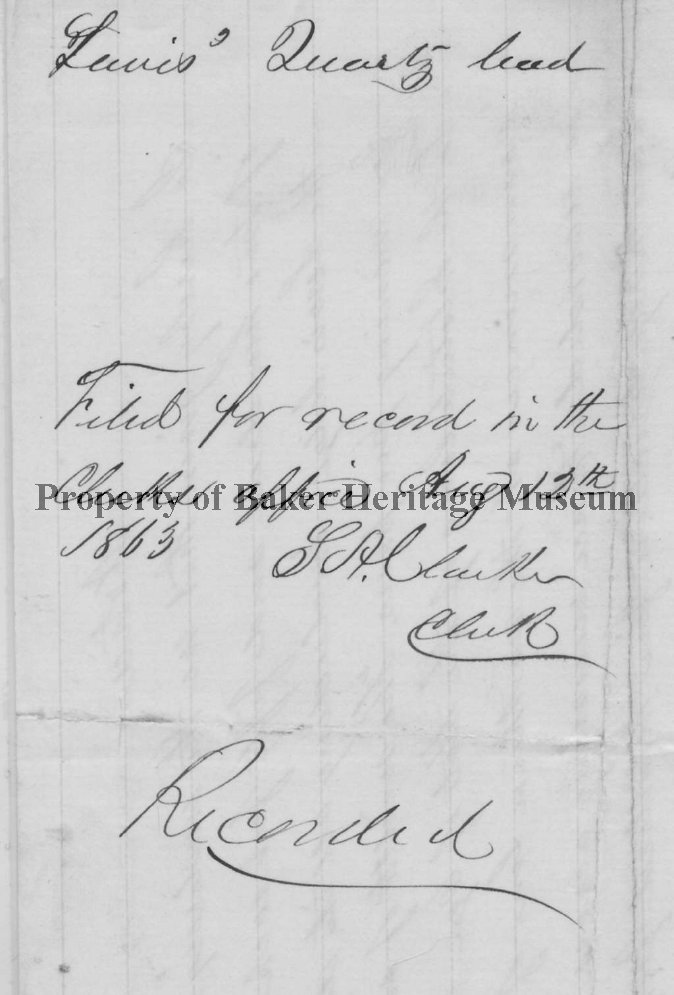 Lewis' Quartz lead
Filed for record in the
Clerks office Aug 12th
Property of Baker Heritage Museum
1863 S. A. Clarke
Clerk
Recorded